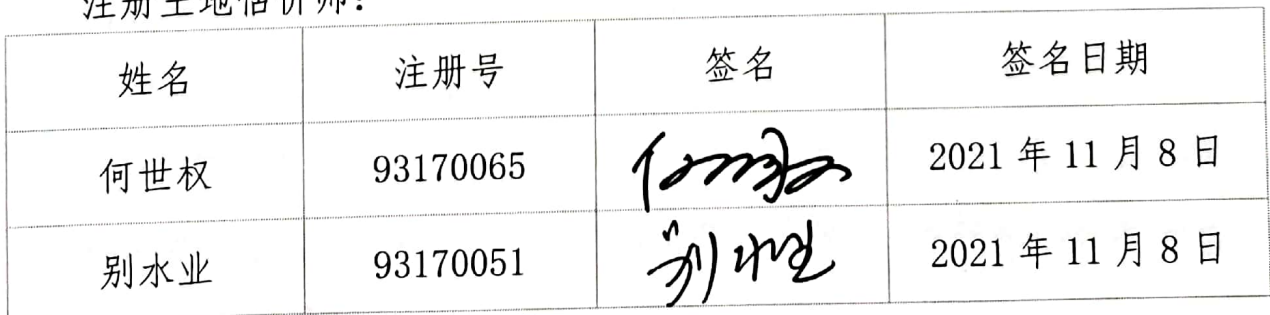 注册土地估价师：
姓名 注册号 签名 签名日期
何世权 93170065 2021 年 11 月 8 日
别水业 93170051 2021 年 11 月 8 日